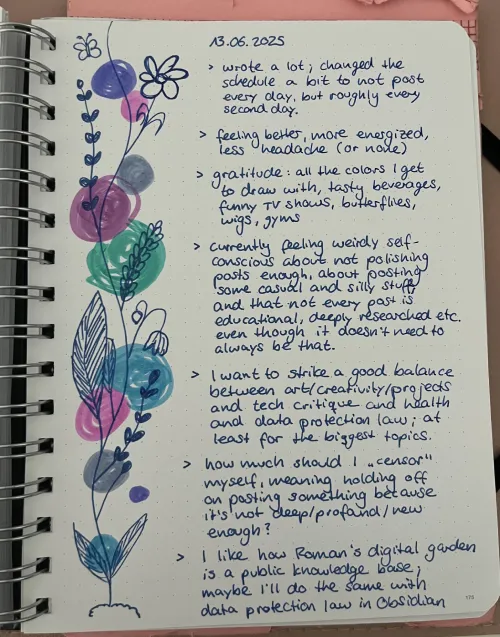 13.06.2025
> wrote a lot; changed the
schedule a bit to not post
every day, but roughly every
second day.
> feeling better, more energized,
less headache (or none)
> gratitude: all the colors I get
to draw with, tasty beverages,
funny TV shows, butterflies,
wigs, gyms
> currently feeling weirdly self-
conscious about not polishing
posts enough, about posting
some casual and silly stuff,
and that not every post is
educational, deeply researched etc.
even though it doesn't need to
always be that.
> I want to strike a good balance
between art/creativity/projects
and tech critique and health
and data protection law; at
least for the biggest topics.
> how much should I „censor"
myself, meaning holding off
on posting something because
it's not deep/profand/new
enough?
> I like how Roman's digital garden
is a public knowledge base;
maybe I'll do the same with
data protection law in Obsidian